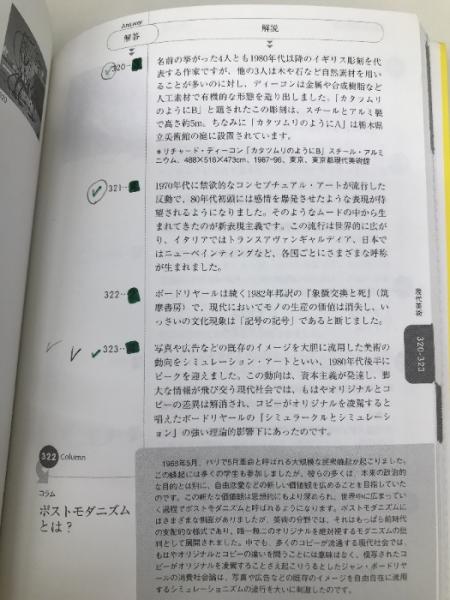 ANSWER
解答
解説
320
名前の挙がった4人とも1980年代以降のイギリス彫刻を代
表する作家ですが、他の3人は木や石など自然素材を用い
ることが多いのに対し、ディーコンは金属や合成樹脂など
人工素材で有機的な形態を造り出しました。「カタツムリ
のようにB」と題されたこの彫刻は、スチールとアルミ製
で高さ約5m。ちなみに「カタツムリのようにA」は栃木県
立美術館の庭に設置されています。
*リチャード・ディーコン「カタツムリのようにB」スチール・アルミ
ニウム、488×518×473cm、1987-96、東京、東京都現代美術館
321
1970年代に禁欲的なコンセプチュアル・アートが流行した
反動で、80年代初頭には感情を爆発させたような表現が待
望されるようになりました。そのようなムードの中から生
まれてきたのが新表現主義です。この流行は世界的に広が
り、イタリアではトランスアヴァンギャルディア、日本で
はニューペインティングなど、各国ごとにさまざまな呼称
が生まれました。
322
ボードリヤールは続く1982年邦訳の『象徴交換と死』(筑
摩書房)で、現代においてモノの生産の価値は消失し、い
っさいの文化現象は「記号の記号」であると断じました。
323
写真や広告などの既存のイメージを大胆に流用した美術の
動向をシミュレーション・アートといい、1980年代後半に
ピークを迎えました。この動向は、資本主義が発達し、膨
大な情報が飛び交う現代社会では、もはやオリジナルとコ
ピーの差異は解消され、コピーがオリジナルを凌駕すると
唱えたボードリヤールの『シミュラークルとシミュレーシ
ョン』の強い理論的影響下にあったのです。
現代美術
320-323
322 Column
コラム
ポストモダニズム
とは?
1968年5月、パリで5月革命と呼ばれる大規模な民衆蜂起が起こりました。
この蜂起には多くの学生も参加しましたが、彼らの多くは、本来の政治的
な目的とは別に、自由恋愛などの新しい価値観を広めることを目指していた
のです。この新たな価値観は思想的にもより深められ、世界中に広まってい
く過程でポストモダニズムと呼ばれるようになります。ポストモダニズムに
はさまざまな側面がありましたが、美術の分野では、それはもっぱら前時代
の支配的な様式であり、唯一無二のオリジナルを絶対視するモダニズムの批
判として展開されました。中でも、多くのコピーが流通する現代社会では、
もはやオリジナルとコピーの違いを問うことには意味はなく、模写されたコ
ピーがオリジナルを凌駕することさえ起こりうるとしたジャン・ボードリヤー
ルの消費社会論は、写真や広告などの既存のイメージを自由自在に流用
するシミュレーショニズムの流行を大いに刺激したのです。